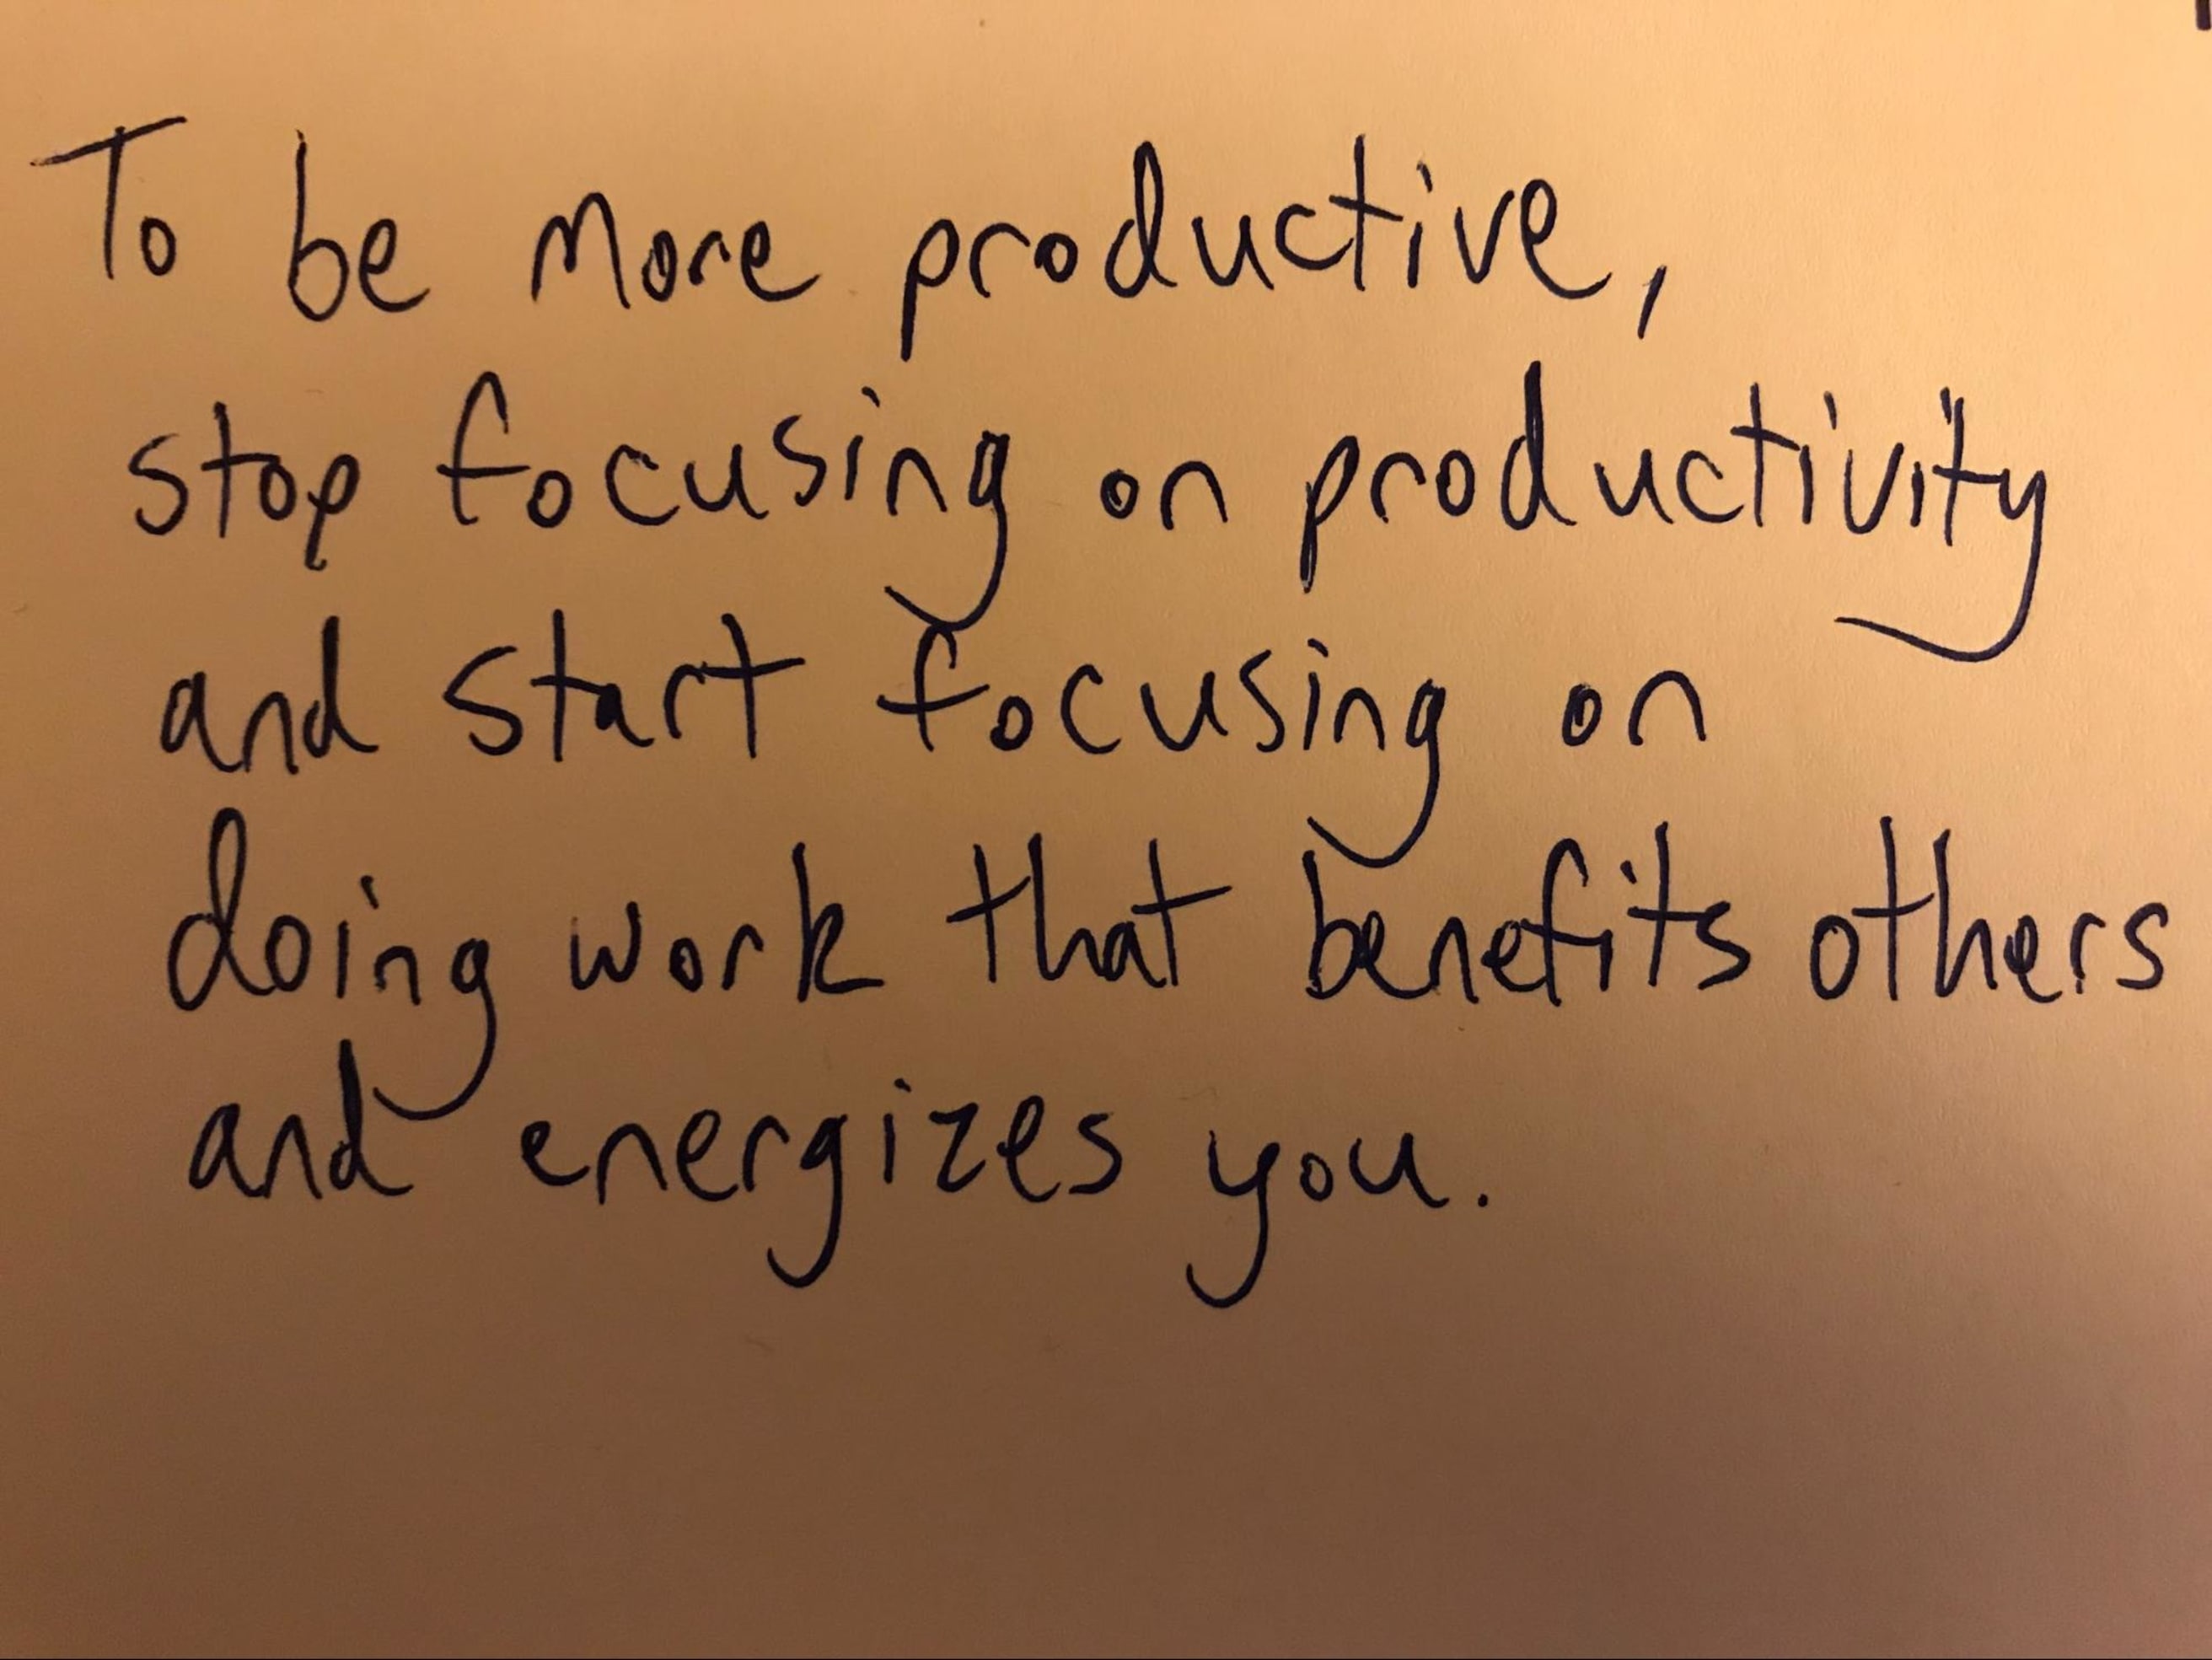 To be more productive,
stop focusing on productivity
and start focusing on
doing work that benefits others
and energizes you.